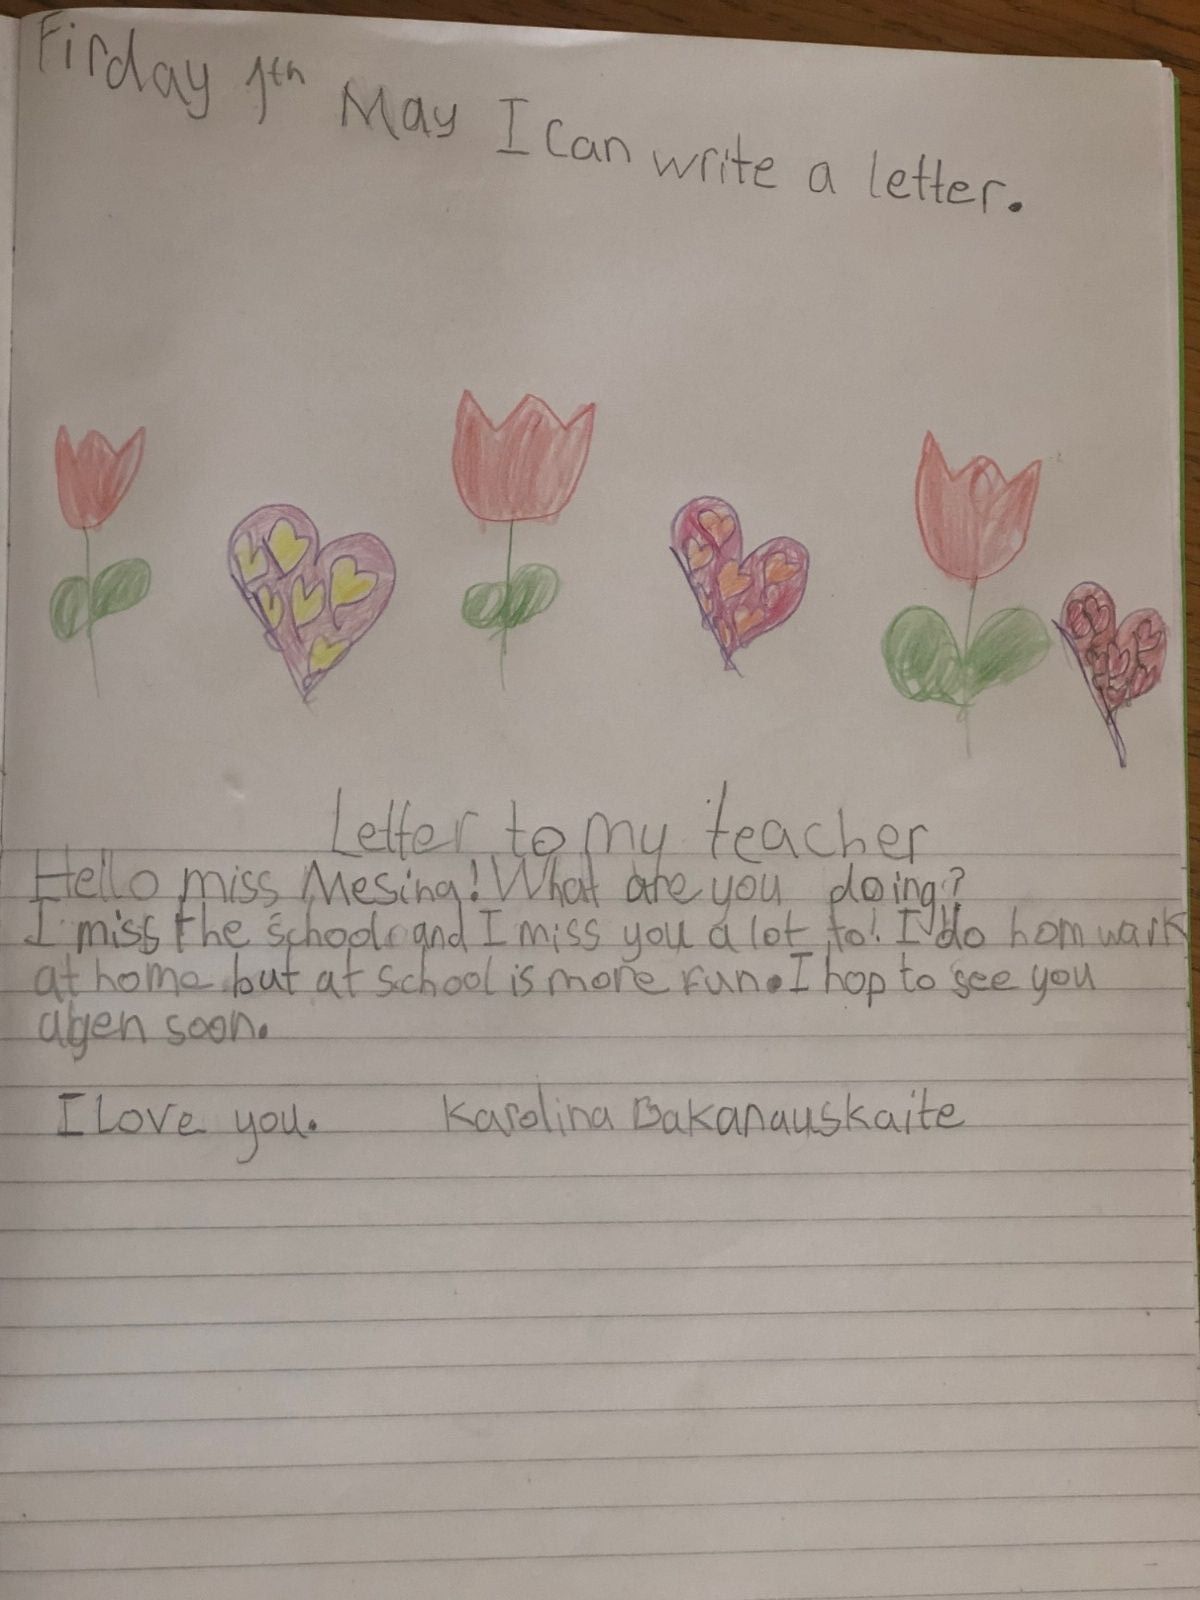 Firday 1th May I can write a letter.
Letter to my teacher
Hello miss Mesing! What are you doing?
I miss the school and I miss you a lot to! I do hom wark
at home but at school is more fun. I hop to see you
agen soon.
I Love you. Karolina Bakanauskaite